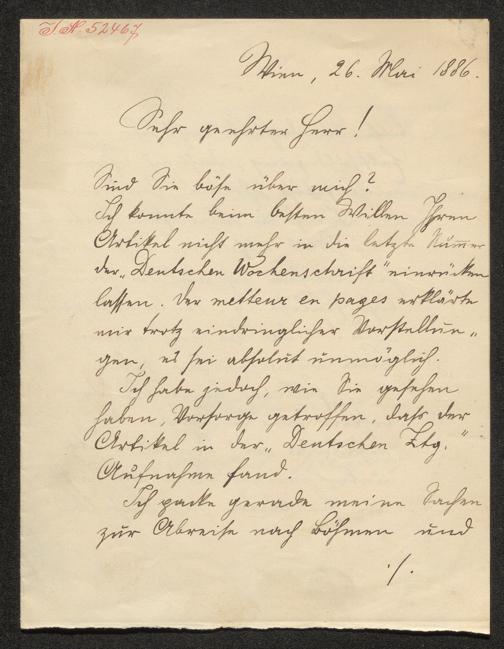 I.N. 52467
Wien, 26. Mai 1886.
Sehr geehrter Herr!
Sind Sie böse über mich?
Ich konnte beim besten Willen Ihren
Artikel nicht mehr in die letzte Nummer
der „Deutschen Wochenschrift“ einrücken
lassen. Der metteur en pages erklärte
mir trotz eindringlicher Vorstellun-
gen, es sei absolut unmöglich.
Ich habe jedoch, wie Sie gesehen
haben, Vorsorge getroffen, dass der
Artikel in der „Deutschen Ztg.“
Aufnahme fand.
Ich packe gerade meine Sachen
zur Abreise nach Böhmen und
./.